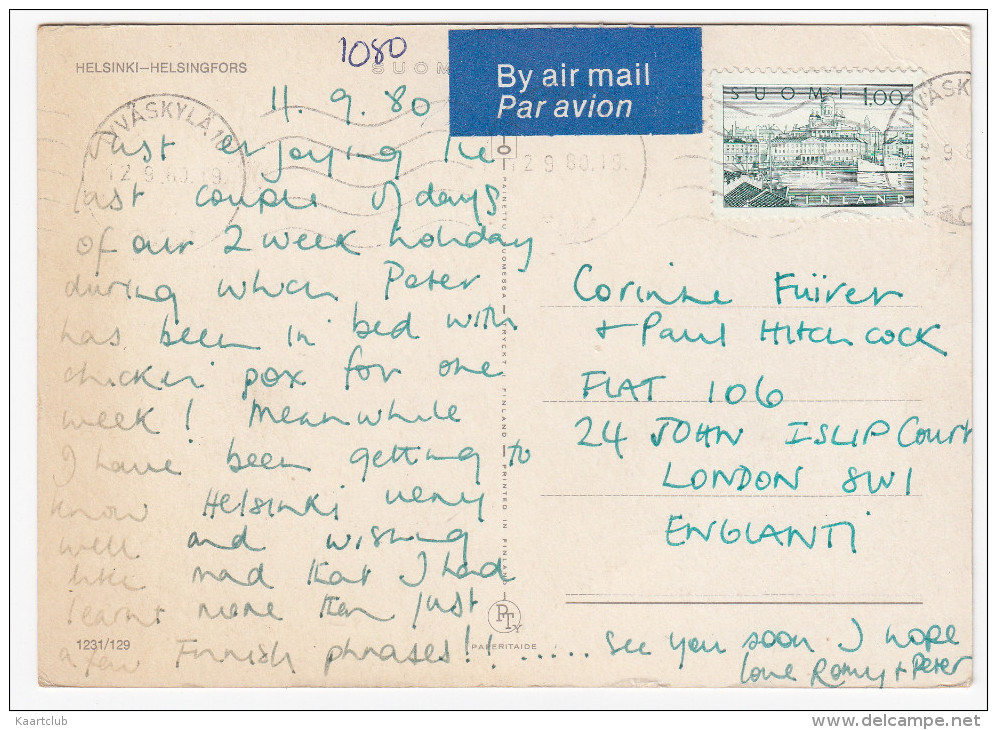 1080
HELSINKI–HELSINGFORS
SUOM
By air mail
Par avion
SUOMI 1.00
FINLAND
JYVÄSKYLÄ 10
12.9.80.19
12.9.80.19
JYVÄSK
9.8
11.9.80
Just enjoying the
last couple of days
of our 2 week holiday
during which Peter
has been in bed with
chicken pox for one
week! Meanwhile
I have been getting to
know Helsinki very
well and wishing
like mad that I had
learnt more than just
a few Finnish phrases!! ..... see you soon I hope
love Romy + Peter
Corinne Fuirer
+ Paul Hitchcock
FLAT 106
24 JOHN ISLIP Court
LONDON SW1
ENGLANTI
PAINETTU SUOMESSA – TRYCKT I FINLAND – PRINTED IN FINLAND
PTy
PAPERITAIDE
1231/129
Kaartclub
delcampe.net